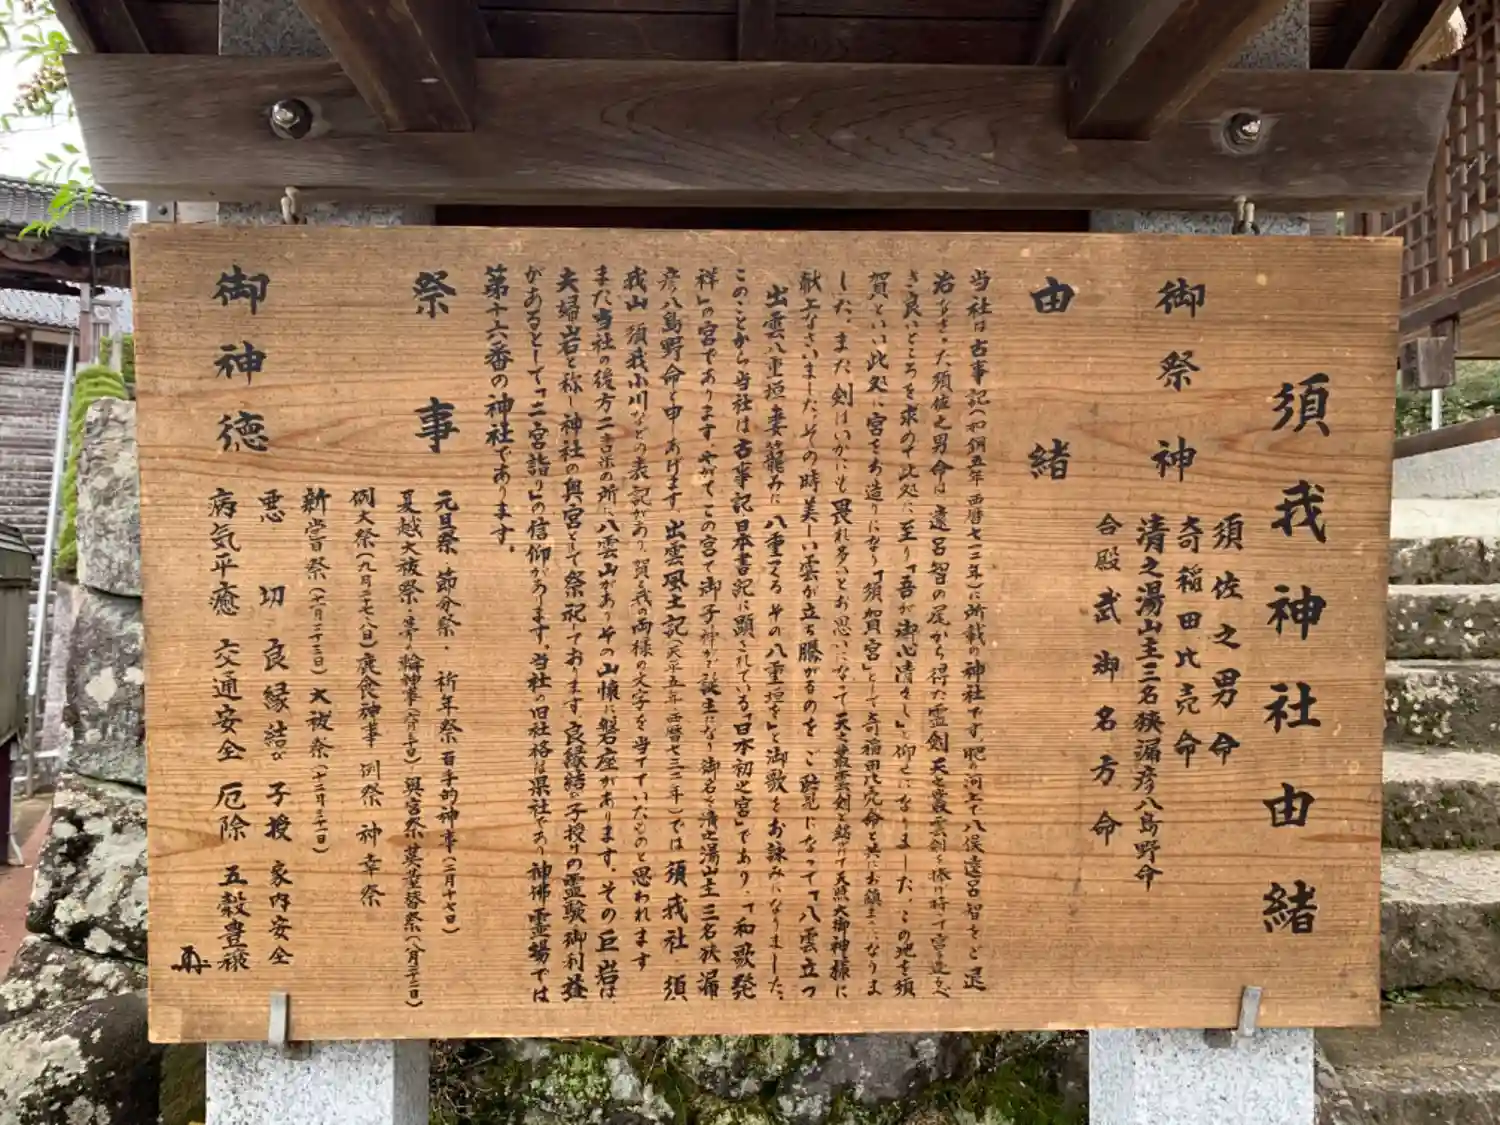 須我神社由緒
御祭神
須佐之男命
奇稲田比売命
清之湯山主三名狭漏彦八島野命
合殿 武御名方命
由緒
当社は古事記(和銅五年西暦七一二年)に所載の神社です。肥の河上で八俣遠呂智をご退
治なさった須佐之男命は遠呂智の尾から得た霊剣天之叢雲剣を
き良いところを求めて此処に至り「吾が御心清々し」と仰せになりました。この地を須
賀といい此処に宮をお造りになり「須賀宮」として奇稲田比売命と共にお鎮まりになりま
した。また剣はいかにも畏れ多いとお思いになって天之叢雲剣と銘けて天照大御神様に
献上なさいました。その時美しい雲が立ち騰がるのをご覧になって「八雲立つ
出雲八重垣 妻籠みに 八重垣つくる その八重垣を」と御歌をお詠みになりました。
このことから当社は古事記日本書記に顕されている「日本初之宮」であり、「和歌発
祥」の宮であります。やがてこの宮で御子神が誕生になり御名を清之湯山主三名狭漏
彦八島野命と申しあげます。出雲風土記(天平五年西暦七三三年)では須我社 須
我山 須我小川などの表記があり、賀と我の両様の文字を当てていたものと思われます
また当社の後方二粁米の所に八雲山がありその山懐に磐座があります。その巨岩は
夫婦岩と称し神社の奥宮として祭祀しております。良縁結び子授けの霊験御利益
があるとして「二宮詣り」の信仰があります。当社の旧社格は県社であり神佛霊場では
第十六番の神社であります。
祭事
元旦祭・節分祭・祈年祭 百手的神事(二月十七日)
夏越大祓祭・茅の輪神事(六月三十日)奥宮祭 茣蓙替祭(八月二十二日)
例大祭(九月二十七、八日)鹿食神事 例祭 神幸祭
新嘗祭(十一月二十三日)大祓祭(十二月三十一日)
御神徳
悪切 良縁結び 子授 家内安全
病気平癒 交通安全 厄除 五穀豊穣